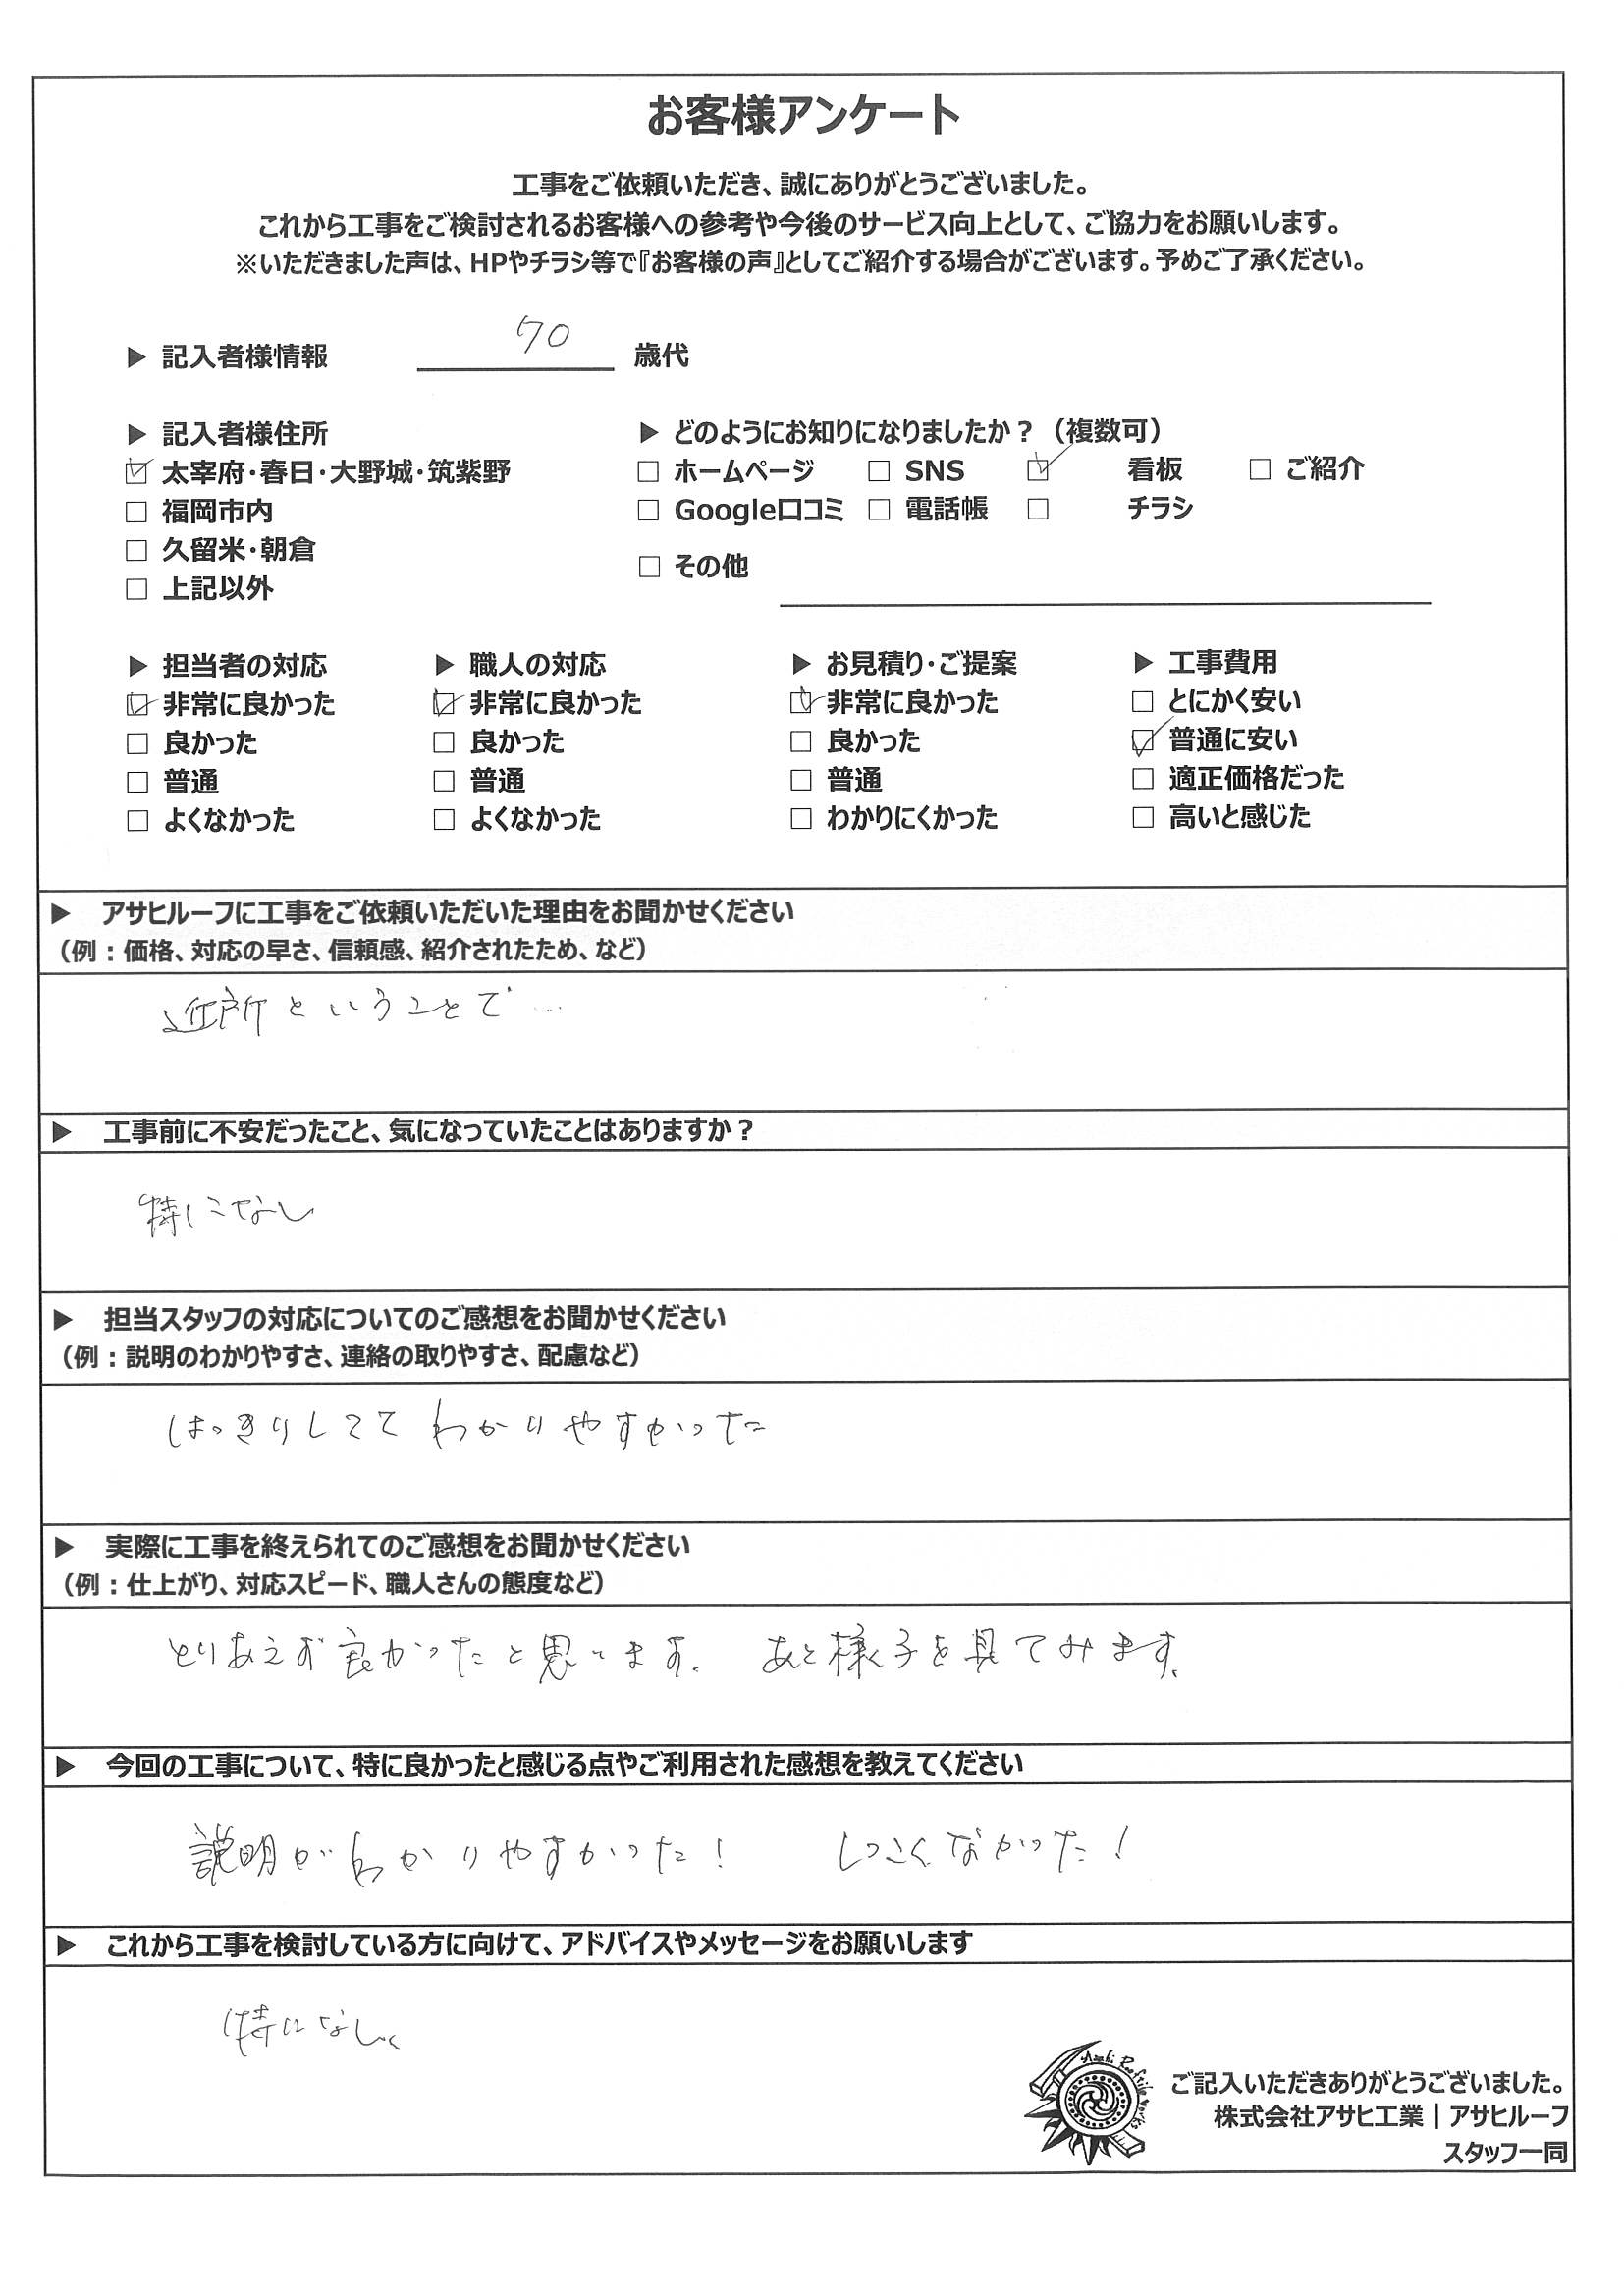 お客様アンケート
工事をご依頼いただき、誠にありがとうございました。
これから工事をご検討されるお客様への参考や今後のサービス向上として、ご協力をお願いします。
※いただきました声は、HPやチラシ等で『お客様の声』としてご紹介する場合がございます。予めご了承ください。
▶ 記入者様情報 70 歳代
▶ 記入者様住所 ▶ どのようにお知りになりましたか？（複数可）
☑ 太宰府・春日・大野城・筑紫野 □ ホームページ □ SNS ☑ 看板 □ ご紹介
□ 福岡市内 □ Google口コミ □ 電話帳 □ チラシ
□ 久留米・朝倉
□ その他
□ 上記以外
▶ 担当者の対応 ▶ 職人の対応 ▶ お見積り・ご提案 ▶ 工事費用
☑ 非常に良かった ☑ 非常に良かった ☑ 非常に良かった □ とにかく安い
□ 良かった □ 良かった □ 良かった ☑ 普通に安い
□ 普通 □ 普通 □ 普通 □ 適正価格だった
□ よくなかった □ よくなかった □ わかりにくかった □ 高いと感じた
▶ アサヒルーフに工事をご依頼いただいた理由をお聞かせください
（例：価格、対応の早さ、信頼感、紹介されたため、など）
近所ということで…
▶ 工事前に不安だったこと、気になっていたことはありますか？
特になし
▶ 担当スタッフの対応についてのご感想をお聞かせください
（例：説明のわかりやすさ、連絡の取りやすさ、配慮など）
はっきりしてて わかりやすかった
▶ 実際に工事を終えられてのご感想をお聞かせください
（例：仕上がり、対応スピード、職人さんの態度など）
とりあえず良かったと思います。 あと様子を見てみます。
▶ 今回の工事について、特に良かったと感じる点やご利用された感想を教えてください
説明がわかりやすかった！ しつこくなかった！
▶ これから工事を検討している方に向けて、アドバイスやメッセージをお願いします
特になし。
Asahi Rooftile Works
ご記入いただきありがとうございました。
株式会社アサヒ工業｜アサヒルーフ
スタッフ一同